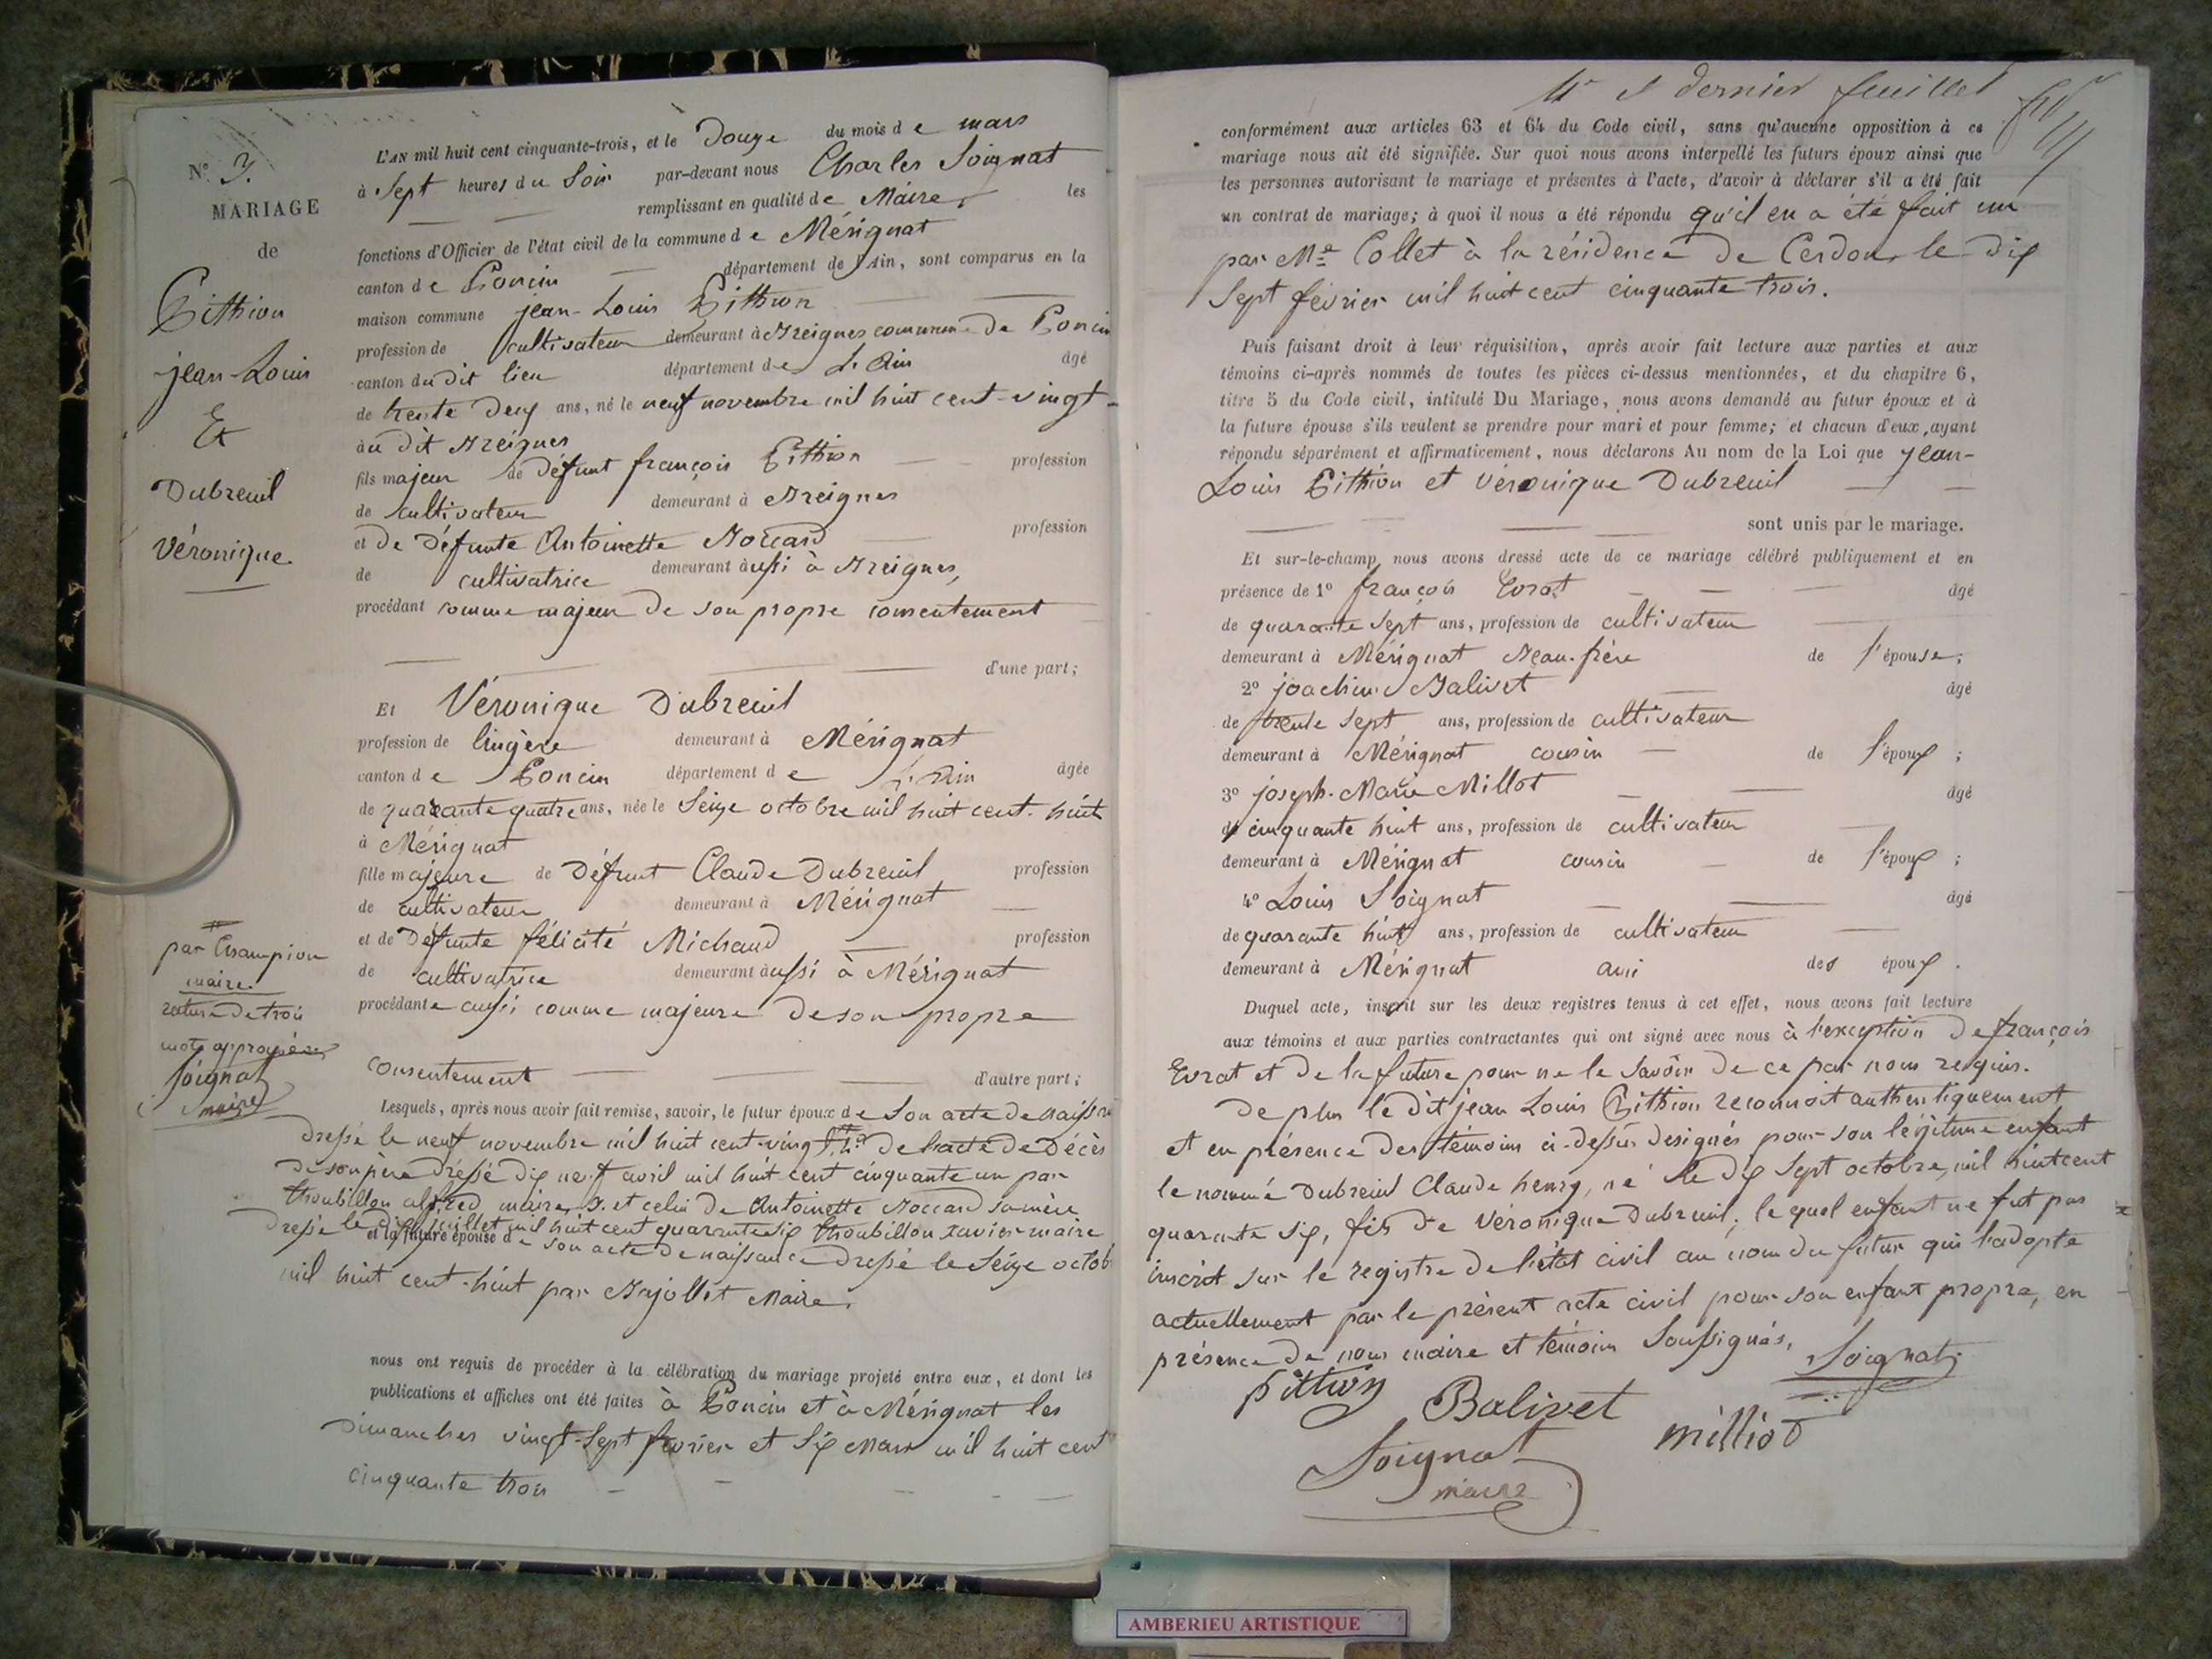 N° 3.
MARIAGE
de
Pitthion
jean-Louis
Et
Dubreuil
Véronique.
L'AN mil huit cent cinquante-trois, et le Douze du mois de mars
à Sept heures du Soir par-devant nous Charles Soignat
remplissant en qualité de Maire, les
fonctions d'Officier de l'état civil de la commune de Mérignat
canton de Poncin département de l'Ain, sont comparus en la
maison commune jean-Louis Pitthion
profession de cultivateur demeurant à Breignes commune de Poncin
canton du dit lieu département de L'Ain âgé
de trente deux ans, né le neuf novembre mil huit cent-vingt-
au dit Breignes
fils majeur de défunt françois Pitthion profession
de cultivateur demeurant à Breignes
et de Défunte Antoinette Boccard profession
de cultivatrice demeurant aussi à Breignes,
procédant comme majeur de son propre consentement
d'une part;
Et Véronique Dubreuil
profession de lingère demeurant à Mérignat
canton de Poncin département de L'Ain âgée
de quarante quatre ans, née le Seize octobre mil huit cent-huit
à Mérignat
fille majeure de Défunt Claude Dubreuil profession
de cultivateur demeurant à Mérignat
et de Défunte félicité Michaud profession
de cultivatrice demeurant aussi à Mérignat
procédante aussi comme majeure de son propre
consentement d'autre part;
par Champion
maire.
rature de trois
mots approuvée
Soignat
maire
Lesquels, après nous avoir fait remise, savoir, le futur époux de son acte de naiss
dressé le neuf novembre mil huit cent-vingt de l'acte de Décès
de son père dressé dix neuf avril mil huit cent cinquante un par
thoubillon alfred maire, et celui de Antoinette Boccard sa mère
dressé le juillet mil huit cent quarante six thoubillon xavier maire
et la future épouse de son acte de naissance dressé le Seize octob
mil huit cent-huit par Bajollet Maire.
nous ont requis de procéder à la célébration du mariage projeté entre eux, et dont les
publications et affiches ont été faites à Poncin et à Mérignat les
Dimanches vingt-Sept février et Six Mars mil huit cent
cinquante trois
4e et dernier feuillet
conformément aux articles 63 et 64 du Code civil, sans qu'aucune opposition à ce
mariage nous ait été signifiée. Sur quoi nous avons interpellé les futurs époux ainsi que
les personnes autorisant le mariage et présentes à l'acte, d'avoir à déclarer s'il a été fait
un contrat de mariage; à quoi il nous a été répondu qu'il en a été fait un
par Me Collet à la résidence de Cerdon le dix
Sept février mil huit cent cinquante trois.
Puis faisant droit à leur réquisition, après avoir fait lecture aux parties et aux
témoins ci-après nommés de toutes les pièces ci-dessus mentionnées, et du chapitre 6,
titre 5 du Code civil, intitulé Du Mariage, nous avons demandé au futur époux et à
la future épouse s'ils veulent se prendre pour mari et pour femme; et chacun d'eux, ayant
répondu séparément et affirmativement, nous déclarons Au nom de la Loi que jean-
Louis Pitthion et Véronique Dubreuil
sont unis par le mariage.
Et sur-le-champ nous avons dressé acte de ce mariage célébré publiquement et en
présence de 1° françois Evrat âgé
de quarante sept ans, profession de cultivateur
demeurant à Mérignat Beau-frère de l'épouse;
2° joachim Balivet âgé
de trente Sept ans, profession de cultivateur
demeurant à Mérignat cousin de l'époux;
3° joseph-Marie Milliot âgé
de cinquante huit ans, profession de cultivateur
demeurant à Mérignat cousin de l'époux;
4° Louis Soignat âgé
de quarante huit ans, profession de cultivateur
demeurant à Mérignat ami des époux.
Duquel acte, inscrit sur les deux registres tenus à cet effet, nous avons fait lecture
aux témoins et aux parties contractantes qui ont signé avec nous à l'exception de françois
Evrat et de la future pour ne le Savoir de ce par nous requis.
De plus le dit jean Louis Pitthion reconnoit authentiquement
et en présence des témoins ci-dessus désignés pour son légitime enfant
le nommé Dubreuil Claude henry, né le dix Sept octobre, mil huit cent
quarante six, fils de Véronique Dubreuil; lequel enfant ne fut pas
inscrit sur le registre de l'état civil au nom du futur qui l'adopte
actuellement par le présent acte civil pour son enfant propre, en
présence de nous maire et témoins Soussignés.
Soignat
pitthion
Balivet
milliot
Soignat
maire
AMBERIEU ARTISTIQUE